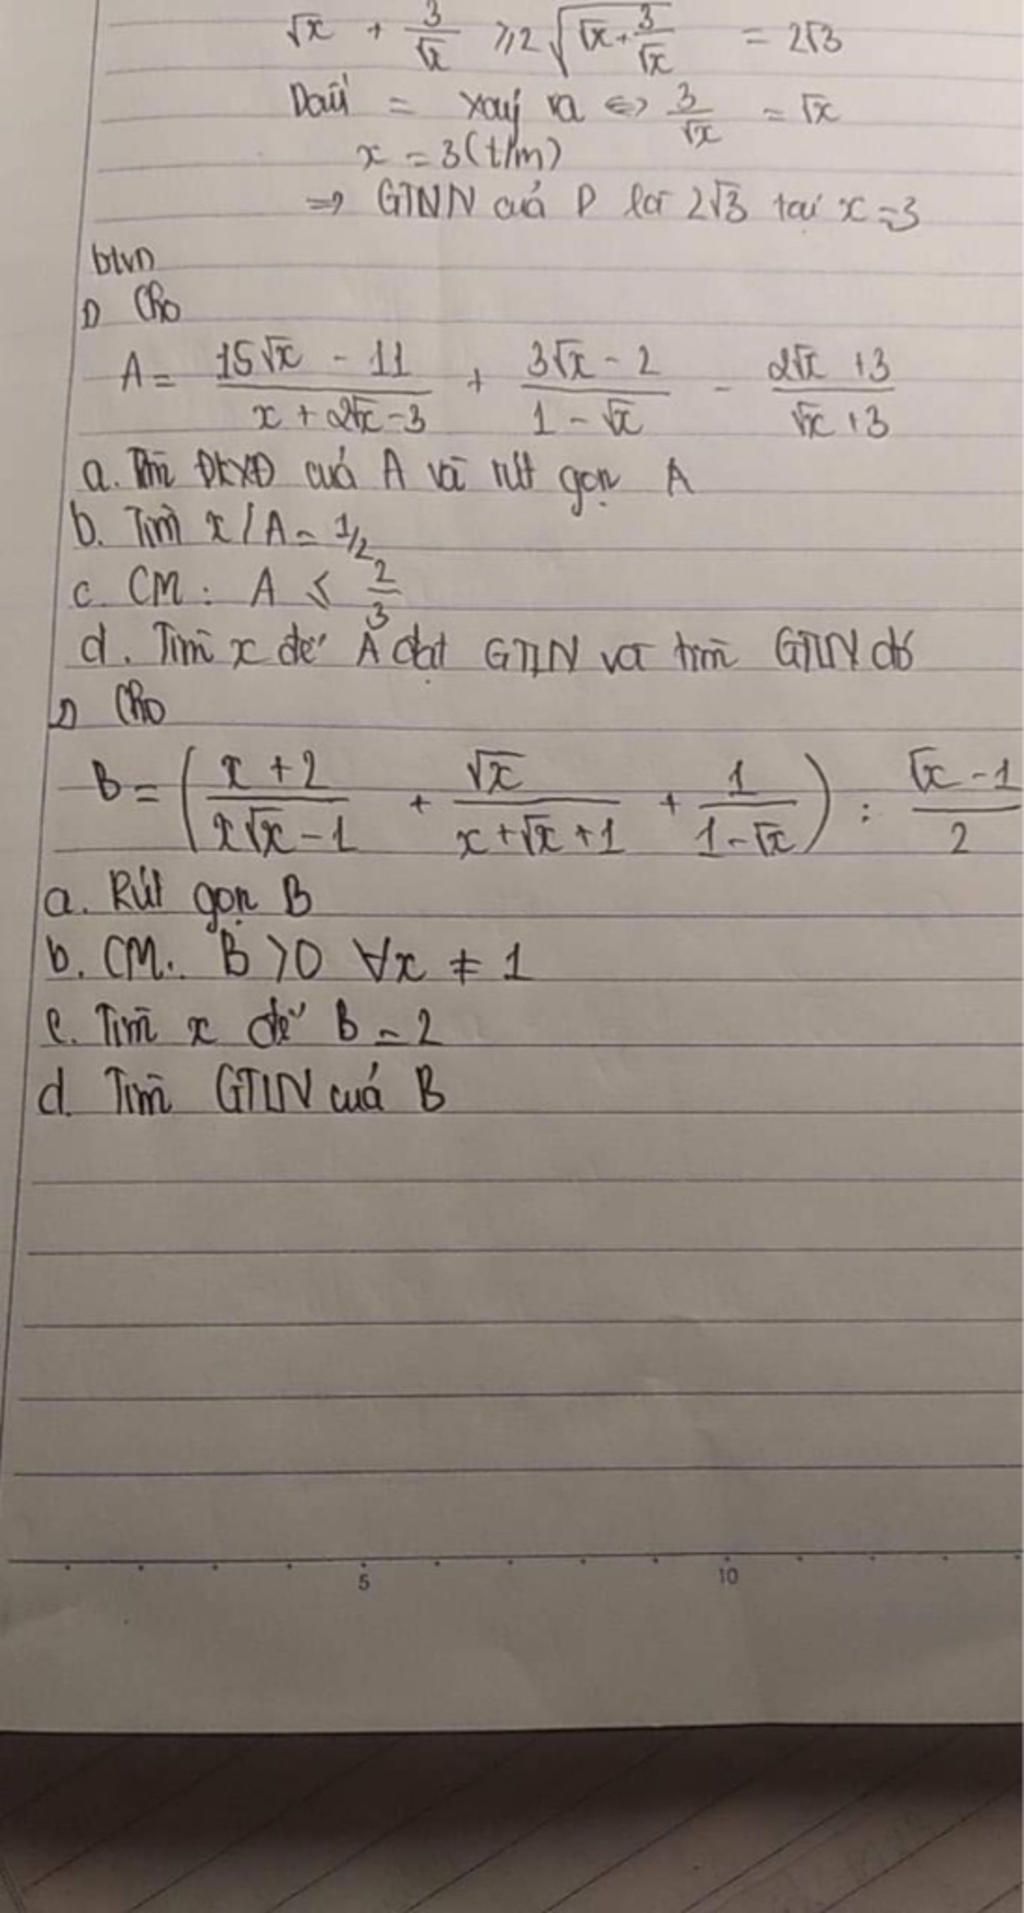 √x + 3/√x ⩾ 2√(√x · 3/√x) = 2√3
Dấu = xảy ra ⇔ 3/√x = √x
x = 3 (t/m)
⇒ GTNN của P là 2√3 tại x = 3
btvn
1) Cho
A = (15√x - 11)/(x + 2√x - 3) + (3√x - 2)/(1 - √x) - (2√x + 3)/(√x + 3)
a. Tìm ĐKXĐ của A và rút gọn A
b. Tìm x / A = 1/2
c. CM : A ⩽ 2/3
d. Tìm x để A đạt GTLN và tìm GTLN đó
2) Cho
B = ((x + 2)/(x√x - 1) + √x/(x + √x + 1) + 1/(1 - √x)) : (√x - 1)/2
a. Rút gọn B
b. CM: B > 0 ∀x ≠ 1
c. Tìm x để B = 2
d. Tìm GTLN của B
5 10